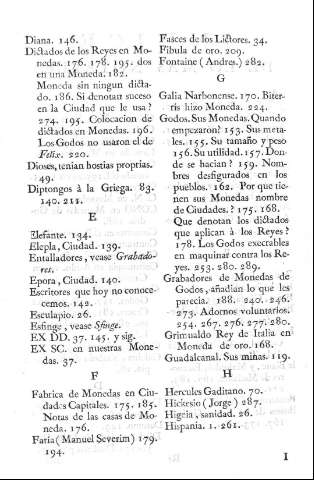 Diana. 146.
Dictados de los Reyes en Mo-
nedas. 176. 178. 195. dos
en una Moneda. 182.
Moneda sin ningun dicta-
do. 186. Si denotan suceso
en la Ciudad que le usa?
274. 195. Colocacion de
dictados en Monedas. 196.
Los Godos no usaron el de
Felix. 220.
Dioses, tenian hostias proprias.
49.
Diptongos à la Griega. 83.
140. 211.
E
Elefante. 134.
Elepla, Ciudad. 139.
Entalladores, vease Grabado-
res.
Epora, Ciudad. 140.
Escritores que hoy no conoce-
cemos. 142.
Esculapio. 26.
Esfinge, vease Sfinge.
EX DD. 37. 145. y sig.
EX SC. en nuestras Mone-
das. 37.
F
Fabrica de Monedas en Ciu-
dades Capitales. 175. 185.
Notas de las casas de Mo-
neda. 176.
Faria (Manuel Severim) 179.
194.
Fasces de los Lictores. 34.
Fibula de oro. 209.
Fontaine (Andres.) 282.
G
Galia Narbonense. 170. Biter-
ris hizo Moneda. 224.
Godos. Sus Monedas. Quando
empezaron? 153. Sus meta-
les. 155. Su tamaño y peso
156. Su utilidad. 157. Don-
de se hacian? 159. Nom-
bres desfigurados en los
pueblos. 162. Por que tie-
nen sus Monedas nombre
de Ciudades.? 175. 168.
Que denotan los dictados
que aplican à los Reyes?
178. Los Godos execrables
en maquinar contra los Re-
yes. 253. 280. 289.
Grabadores de Monedas de
Godos, añadian lo que les
parecia. 188. 240. 246.
273. Adornos voluntarios.
254. 267. 276. 277. 280.
Grimualdo Rey de Italia en
Moneda de oro. 168.
Guadalcanal. Sus minas. 119.
H
Hercules Gaditano. 70.
Hickesio (Jorge) 287.
Higeia, sanidad. 26.
Hispania. 1. 261.
I